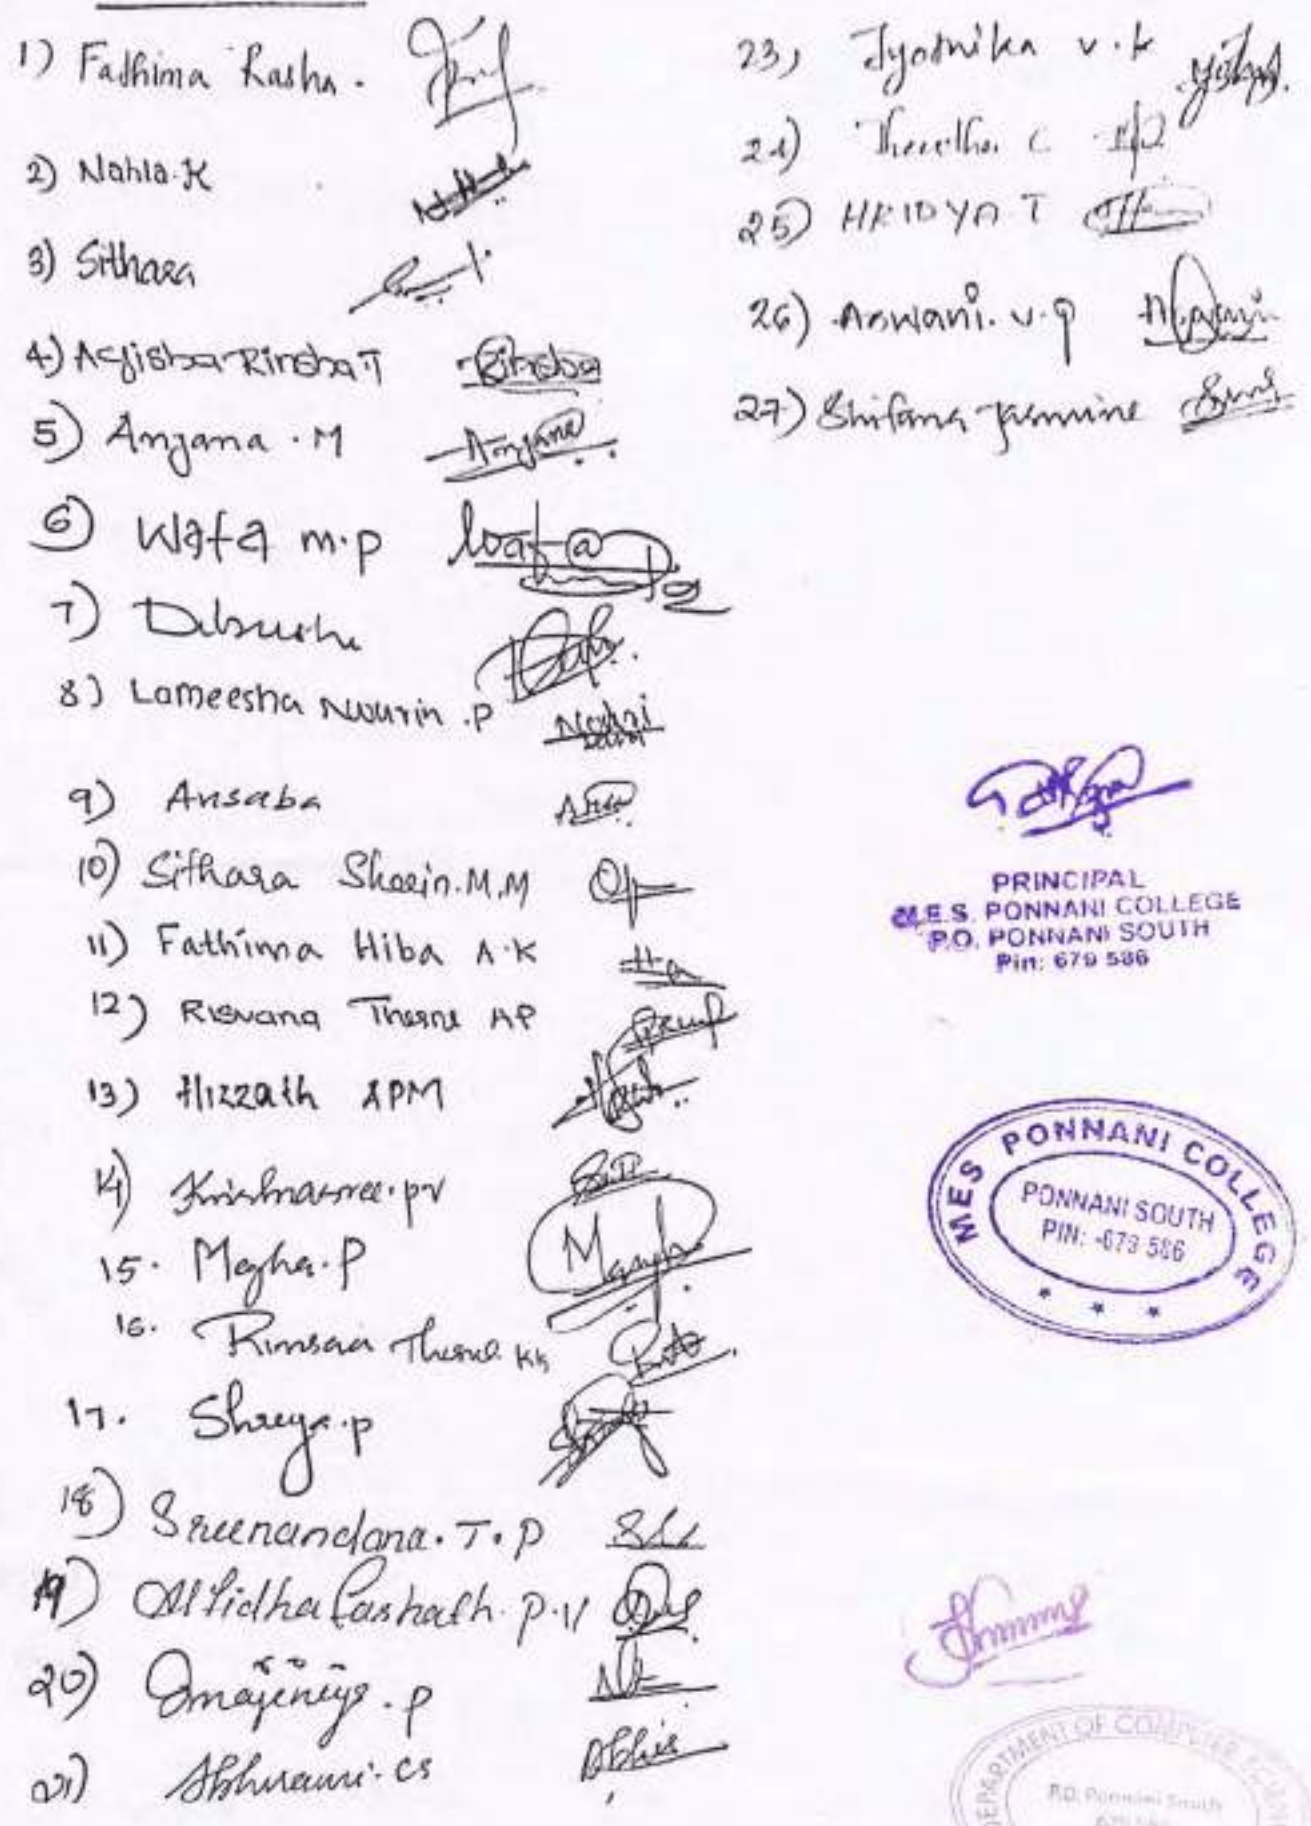 1) Fathima Rasha.
2) Nahla.K
3) Sithara
4) Ayisha Rinsha.T Rinsha
5) Anjana.M Anjana
6) Wafa m.p
7)
8) Lameesha Nourin.P
9) Ansaba
10) Sithara Sherin.M.M
11) Fathima Hiba A.K
12) Risvana Thesni AP
13) Hizzath APM
14) Krishnasree.pv
15. Megha.P
16. Rinsha Thesni kk
17. Shreya.p
18) Sreenandana.T.P
19)
20)
21) Abhirami.cs
23, Jyotnika v.k
24) Theertha C
25) HRIDYA T
26) Aswani.v.p
27) Shifana Jasmine
PRINCIPAL
M.E.S. PONNANI COLLEGE
P.O. PONNANI SOUTH
Pin: 679 586
MES PONNANI COLLEGE
PONNANI SOUTH
PIN: -679 586
DEPARTMENT OF COMPUTER SCIENCE
P.O. Ponnani South